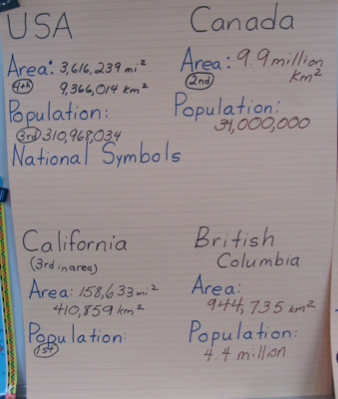 USA
Area: 3,616,239 mi²
4th 9,366,014 km²
Population:
3rd 310,968,034
National Symbols
Canada
Area: 9.9 million
2nd km²
Population:
34,000,000
California
(3rd in area)
Area: 158,633 mi²
410,859 km²
Population:
1st
British
Columbia
Area:
944,735 km²
Population:
4.4 million